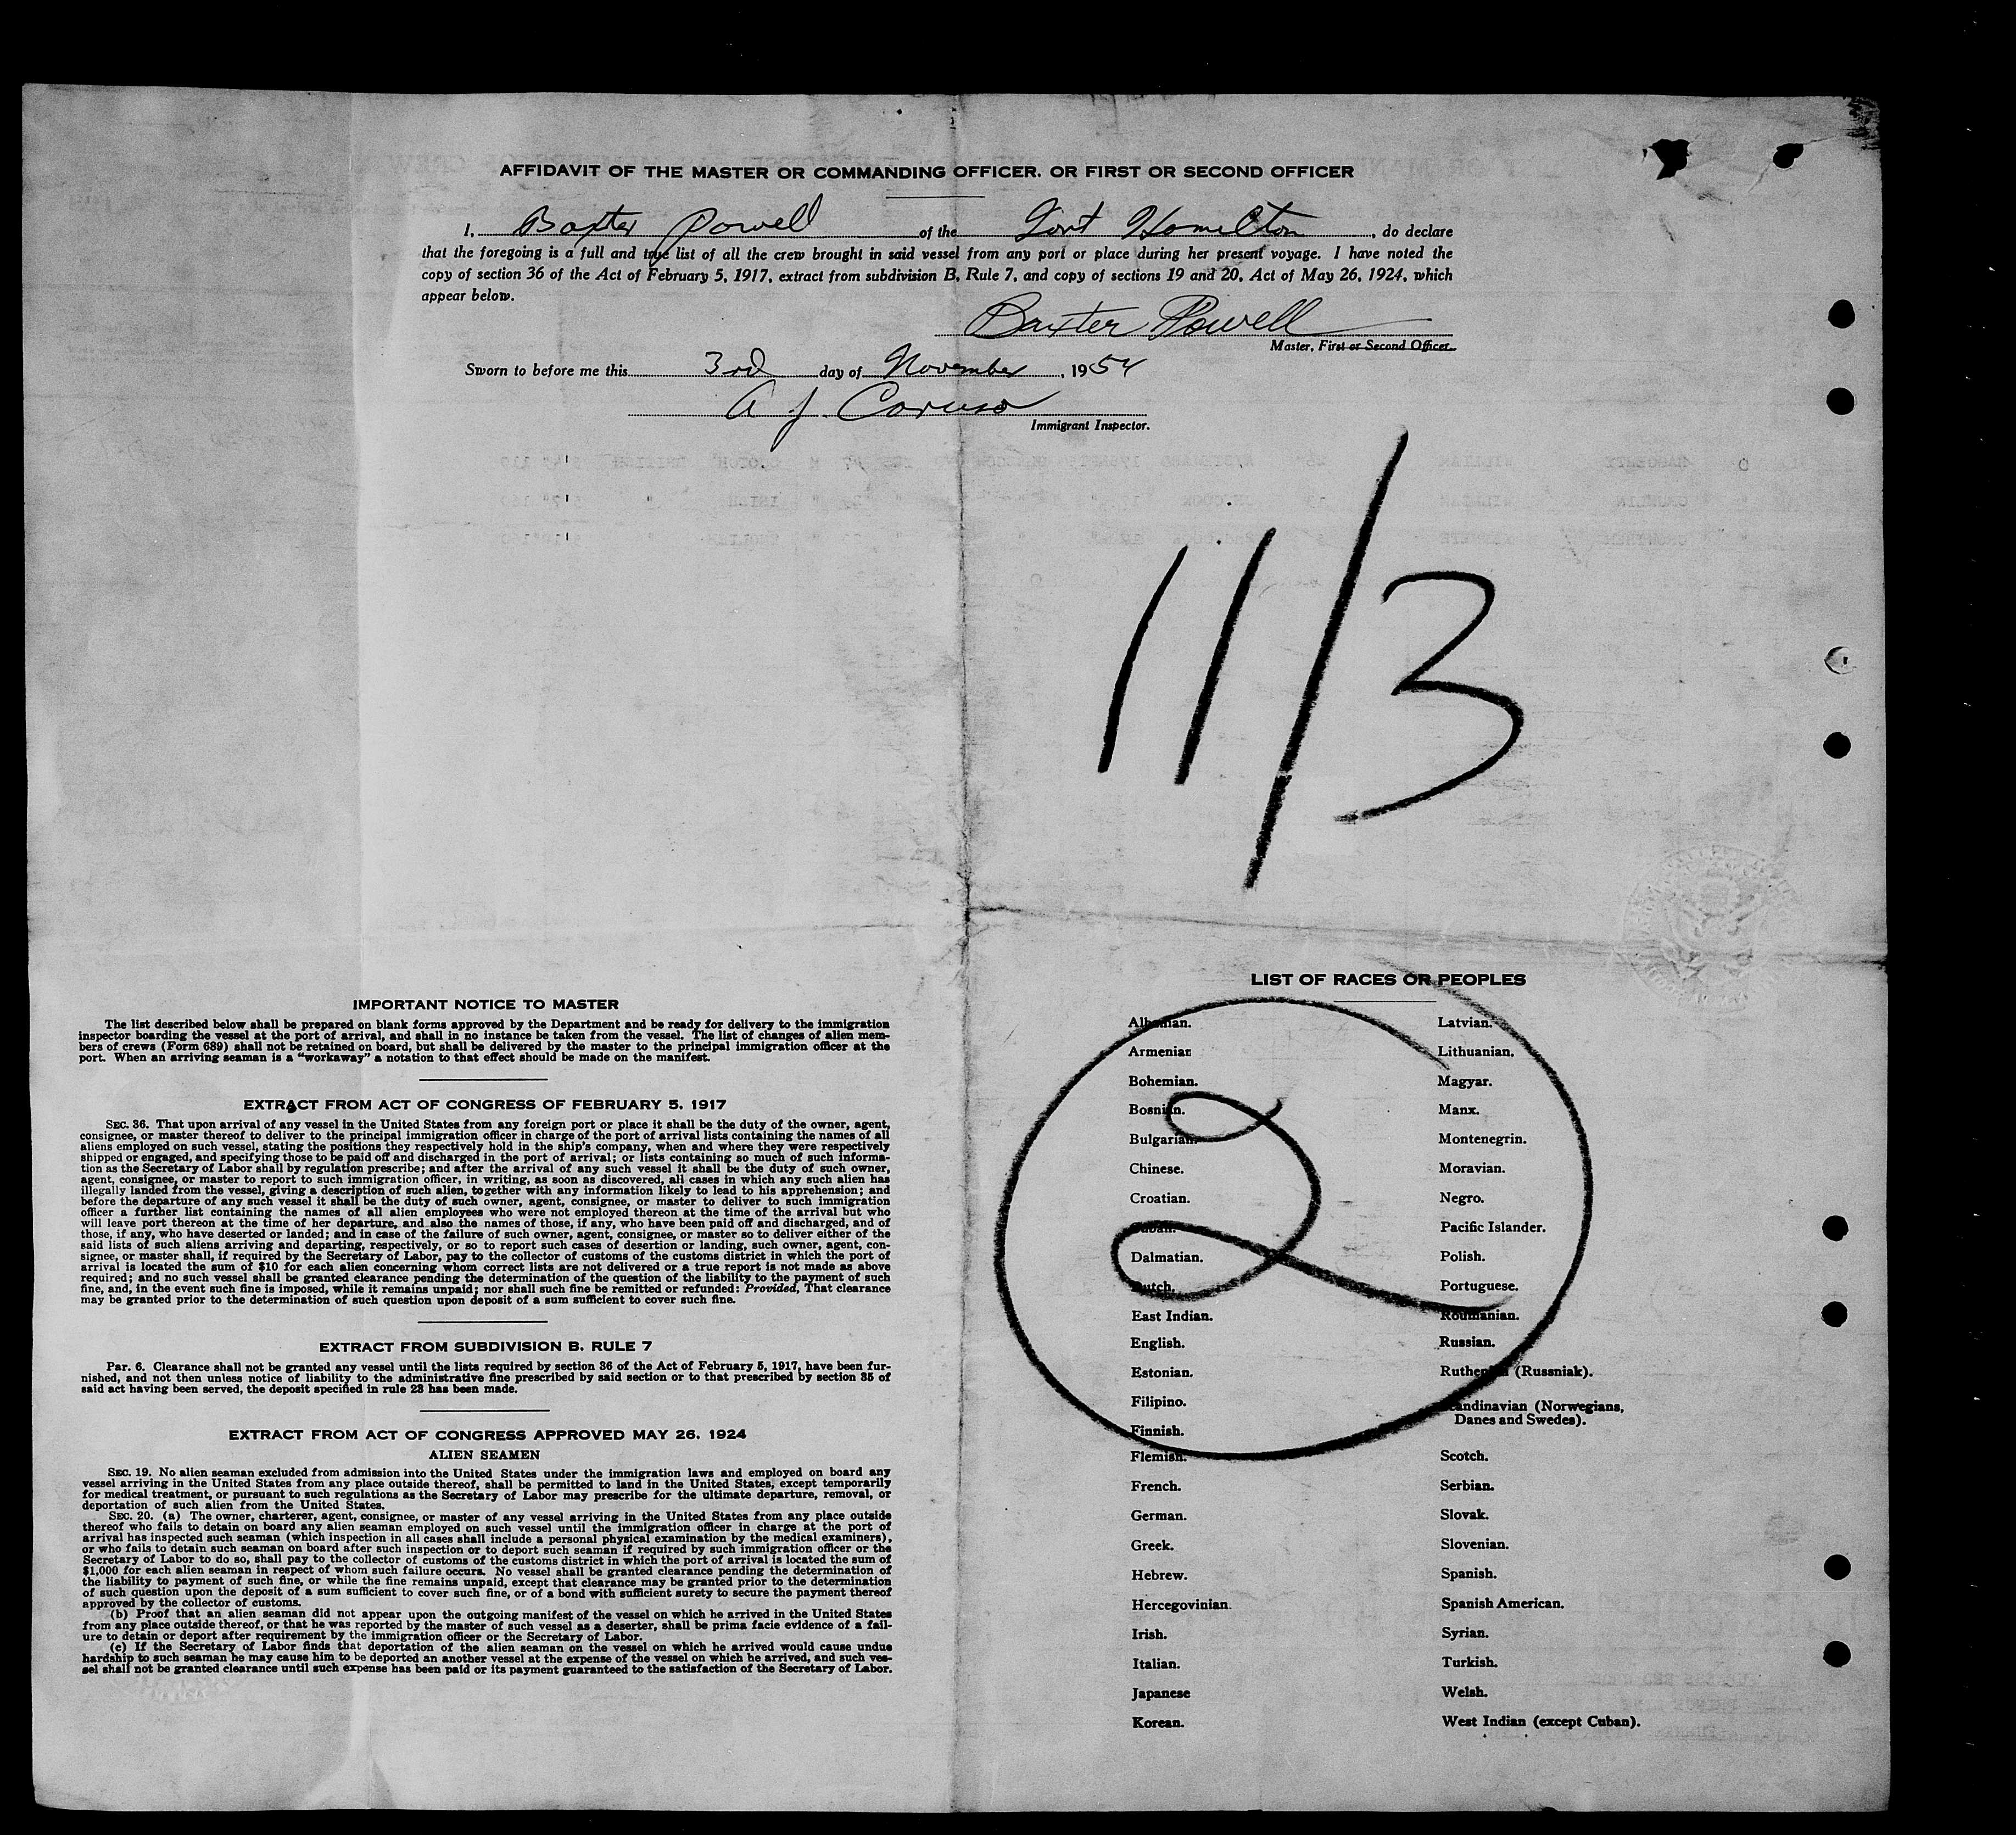 AFFIDAVIT OF THE MASTER OR COMMANDING OFFICER, OR FIRST OR SECOND OFFICER
I, Baxter Powell of the Fort Hamilton, do declare
that the foregoing is a full and true list of all the crew brought in said vessel from any port or place during her present voyage. I have noted the
copy of section 36 of the Act of February 5, 1917, extract from subdivision B, Rule 7, and copy of sections 19 and 20, Act of May 26, 1924, which
appear below.
Baxter Powell
Master, First or Second Officer.
Sworn to before me this 3rd day of November, 1954
A J. Caruso
Immigrant Inspector.
11/3
IMPORTANT NOTICE TO MASTER
The list described below shall be prepared on blank forms approved by the Department and be ready for delivery to the immigration
inspector boarding the vessel at the port of arrival, and shall in no instance be taken from the vessel. The list of changes of alien mem-
bers of crews (Form 689) shall not be retained on board, but shall be delivered by the master to the principal immigration officer at the
port. When an arriving seaman is a "workaway" a notation to that effect should be made on the manifest.
EXTRACT FROM ACT OF CONGRESS OF FEBRUARY 5, 1917
SEC. 36. That upon arrival of any vessel in the United States from any foreign port or place it shall be the duty of the owner, agent,
consignee, or master thereof to deliver to the principal immigration officer in charge of the port of arrival lists containing the names of all
aliens employed on such vessel, stating the positions they respectively hold in the ship's company, when and where they were respectively
shipped or engaged, and specifying those to be paid off and discharged in the port of arrival; or lists containing so much of such informa-
tion as the Secretary of Labor shall by regulation prescribe; and after the arrival of any such vessel it shall be the duty of such owner,
agent, consignee, or master to report to such immigration officer, in writing, as soon as discovered, all cases in which any such alien has
illegally landed from the vessel, giving a description of such alien, together with any information likely to lead to his apprehension; and
before the departure of any such vessel it shall be the duty of such owner, agent, consignee, or master to deliver to such immigration
officer a further list containing the names of all alien employees who were not employed thereon at the time of the arrival but who
will leave port thereon at the time of her departure, and also the names of those, if any, who have been paid off and discharged, and of
those, if any, who have deserted or landed; and in case of the failure of such owner, agent, consignee, or master so to deliver either of the
said lists of such aliens arriving and departing, respectively, or so to report such cases of desertion or landing, such owner, agent, con-
signee, or master shall, if required by the Secretary of Labor, pay to the collector of customs of the customs district in which the port of
arrival is located the sum of $10 for each alien concerning whom correct lists are not delivered or a true report is not made as above
required; and no such vessel shall be granted clearance pending the determination of the question of the liability to the payment of such
fine, and, in the event such fine is imposed, while it remains unpaid; nor shall such fine be remitted or refunded: Provided, That clearance
may be granted prior to the determination of such question upon deposit of a sum sufficient to cover such fine.
EXTRACT FROM SUBDIVISION B, RULE 7
Par. 6. Clearance shall not be granted any vessel until the lists required by section 36 of the Act of February 5, 1917, have been fur-
nished, and not then unless notice of liability to the administrative fine prescribed by said section or to that prescribed by section 35 of
said act having been served, the deposit specified in rule 23 has been made.
EXTRACT FROM ACT OF CONGRESS APPROVED MAY 26, 1924
ALIEN SEAMEN
SEC. 19. No alien seaman excluded from admission into the United States under the immigration laws and employed on board any
vessel arriving in the United States from any place outside thereof, shall be permitted to land in the United States, except temporarily
for medical treatment, or pursuant to such regulations as the Secretary of Labor may prescribe for the ultimate departure, removal, or
deportation of such alien from the United States.
SEC. 20. (a) The owner, charterer, agent, consignee, or master of any vessel arriving in the United States from any place outside
thereof who fails to detain on board any alien seaman employed on such vessel until the immigration officer in charge at the port of
arrival has inspected such seaman (which inspection in all cases shall include a personal physical examination by the medical examiners),
or who fails to detain such seaman on board after such inspection or to deport such seaman if required by such immigration officer or the
Secretary of Labor to do so, shall pay to the collector of customs of the customs district in which the port of arrival is located the sum of
$1,000 for each alien seaman in respect of whom such failure occurs. No vessel shall be granted clearance pending the determination of
the liability to payment of such fine, or while the fine remains unpaid, except that clearance may be granted prior to the determination
of such question upon the deposit of a sum sufficient to cover such fine, or of a bond with sufficient surety to secure the payment thereof
approved by the collector of customs.
(b) Proof that an alien seaman did not appear upon the outgoing manifest of the vessel on which he arrived in the United States
from any place outside thereof, or that he was reported by the master of such vessel as a deserter, shall be prima facie evidence of a fail-
ure to detain or deport after requirement by the immigration officer or the Secretary of Labor.
(c) If the Secretary of Labor finds that deportation of the alien seaman on the vessel on which he arrived would cause undue
hardship to such seaman he may cause him to be deported an another vessel at the expense of the vessel on which he arrived, and such ves-
sel shall not be granted clearance until such expense has been paid or its payment guaranteed to the satisfaction of the Secretary of Labor.
LIST OF RACES OR PEOPLES
2
Albanian.
Armenian
Bohemian.
Bosnian.
Bulgarian.
Chinese.
Croatian.
Cuban.
Dalmatian.
Dutch.
East Indian.
English.
Estonian.
Filipino.
Finnish.
Flemish.
French.
German.
Greek.
Hebrew.
Hercegovinian.
Irish.
Italian.
Japanese
Korean.
Latvian.
Lithuanian.
Magyar.
Manx.
Montenegrin.
Moravian.
Negro.
Pacific Islander.
Polish.
Portuguese.
Roumanian.
Russian.
Ruthenian (Russniak).
Scandinavian (Norwegians,
Danes and Swedes).
Scotch.
Serbian.
Slovak.
Slovenian.
Spanish.
Spanish American.
Syrian.
Turkish.
Welsh.
West Indian (except Cuban).